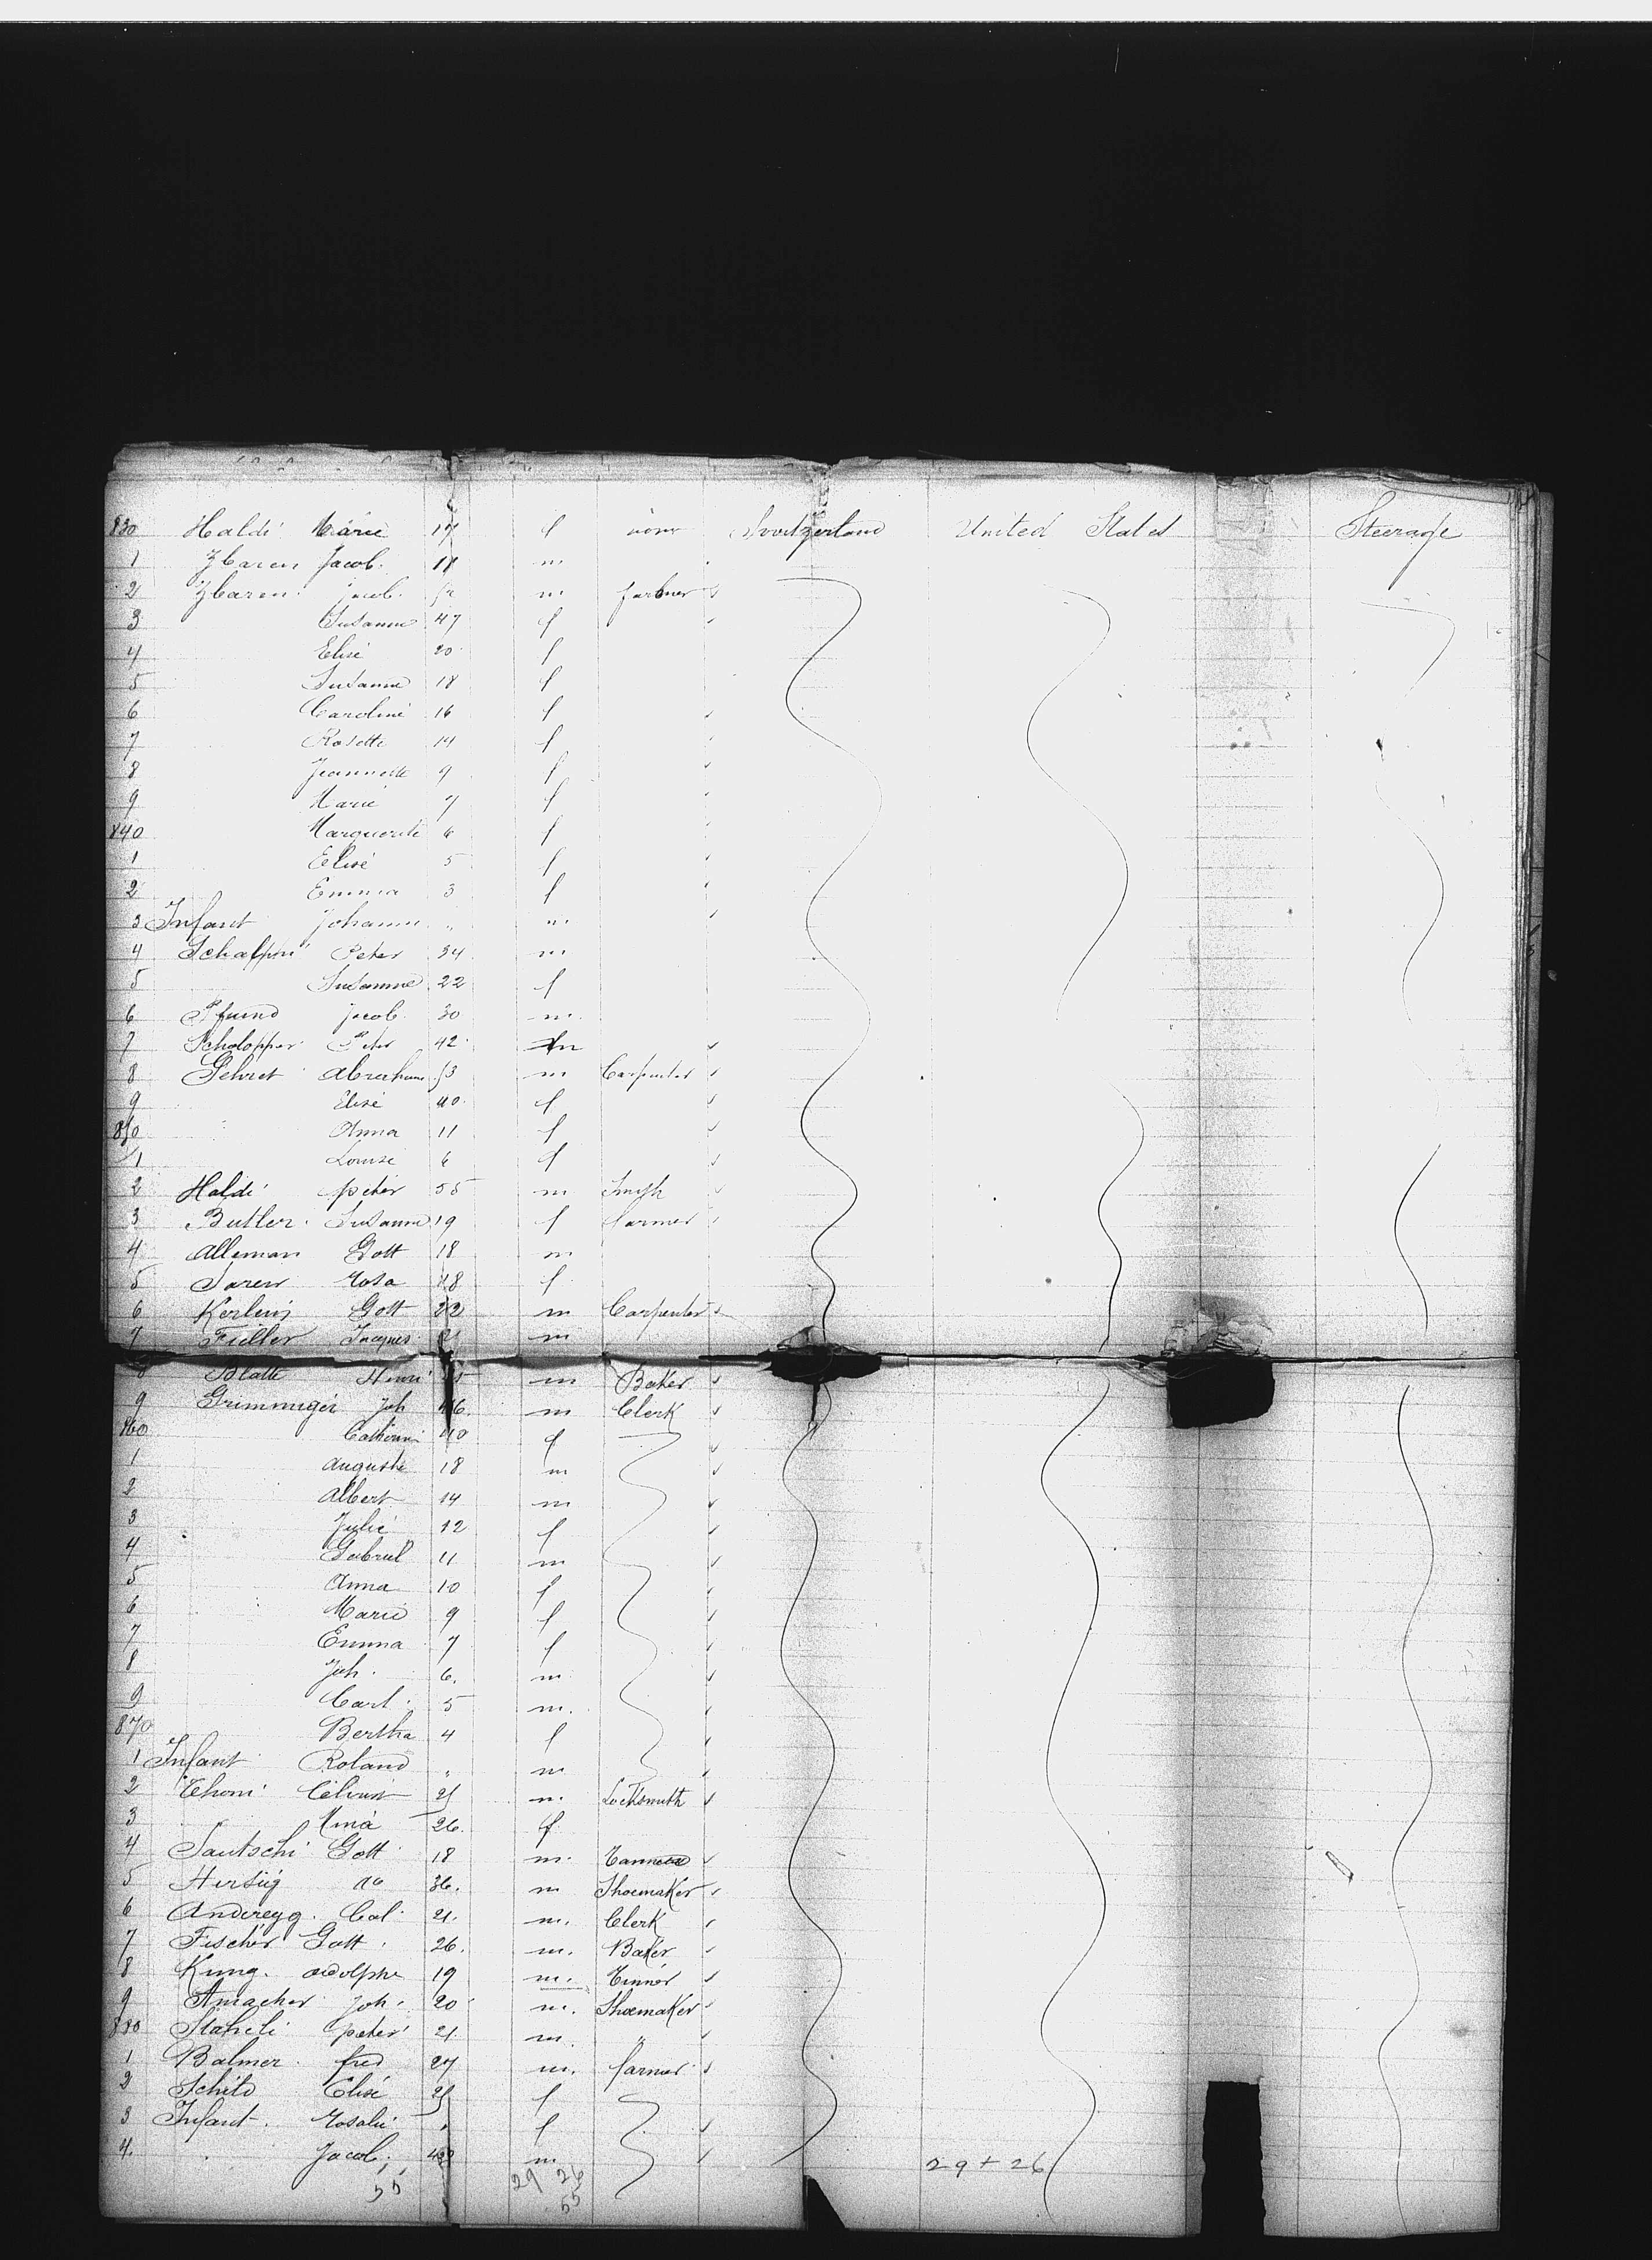 830 Haldi Marie 17 f none Switzerland United States Steerage
1 Zbaren Jacob. 18 m
2 Zbaren Jacob. 52 m farmer
3 Susanne 47 f
4 Elise 20 f
5 Susanne 18 f
6 Caroline 16 f
7 Rosette 14 f
8 Jeannette 9 f
9 Marie 7 f
840 Marguerite 6 f
1 Elise 5 f
2 Emma 3 f
3 Infant Johann " m
4 Peter 34 m
5 Susanne 22 f
6 Pfund Jacob 30 m.
7 Schopper Peter 42 m
8 Gehret Abraham 53 m Carpenter
9 Elise 40 f
850 Anna 11 f
1 Louise 6 f
2 Haldi peter 55 m Smith
3 Butler Susanne 19 f farmer
4 Alleman Gott 18 m
5 Rosa 18 f
6 Gott 22 m Carpenter
7 Fuller Jacques 21 m
8 Blatti Henri m Baker
9 Joh 46. m Clerk
860 40 f
1 auguste 18 m
2 Albert 14 m
3 Julie 12 f
4 Gabriel 11 m
5 Anna 10 f
6 Marie 9 f
7 Emma 7 f
8 Joh. 6. m
9 Carl. 5 m.
870 Bertha 4 f
1 Infant Roland " m
2 Thoni 25 m. Locksmith
3 Nina 26. f
4 Gott 18 m.
5 Hersig do 36. m Shoemaker
6 Andereyg. Cal. 21. m. Clerk
7 Fischer Gott. 26. m. Baker
8 Kung. adolphe 19 m. Tinner
9 Amacher Joh. 20 m. Shoemaker
880 Staheli peter 21. m. "
1 Balmer. fred 27 m. farmer
2 Schild Elise 25 f
3 Infant. Rosalie " f
4. Jacob. m
55 29 26 29 + 26
55